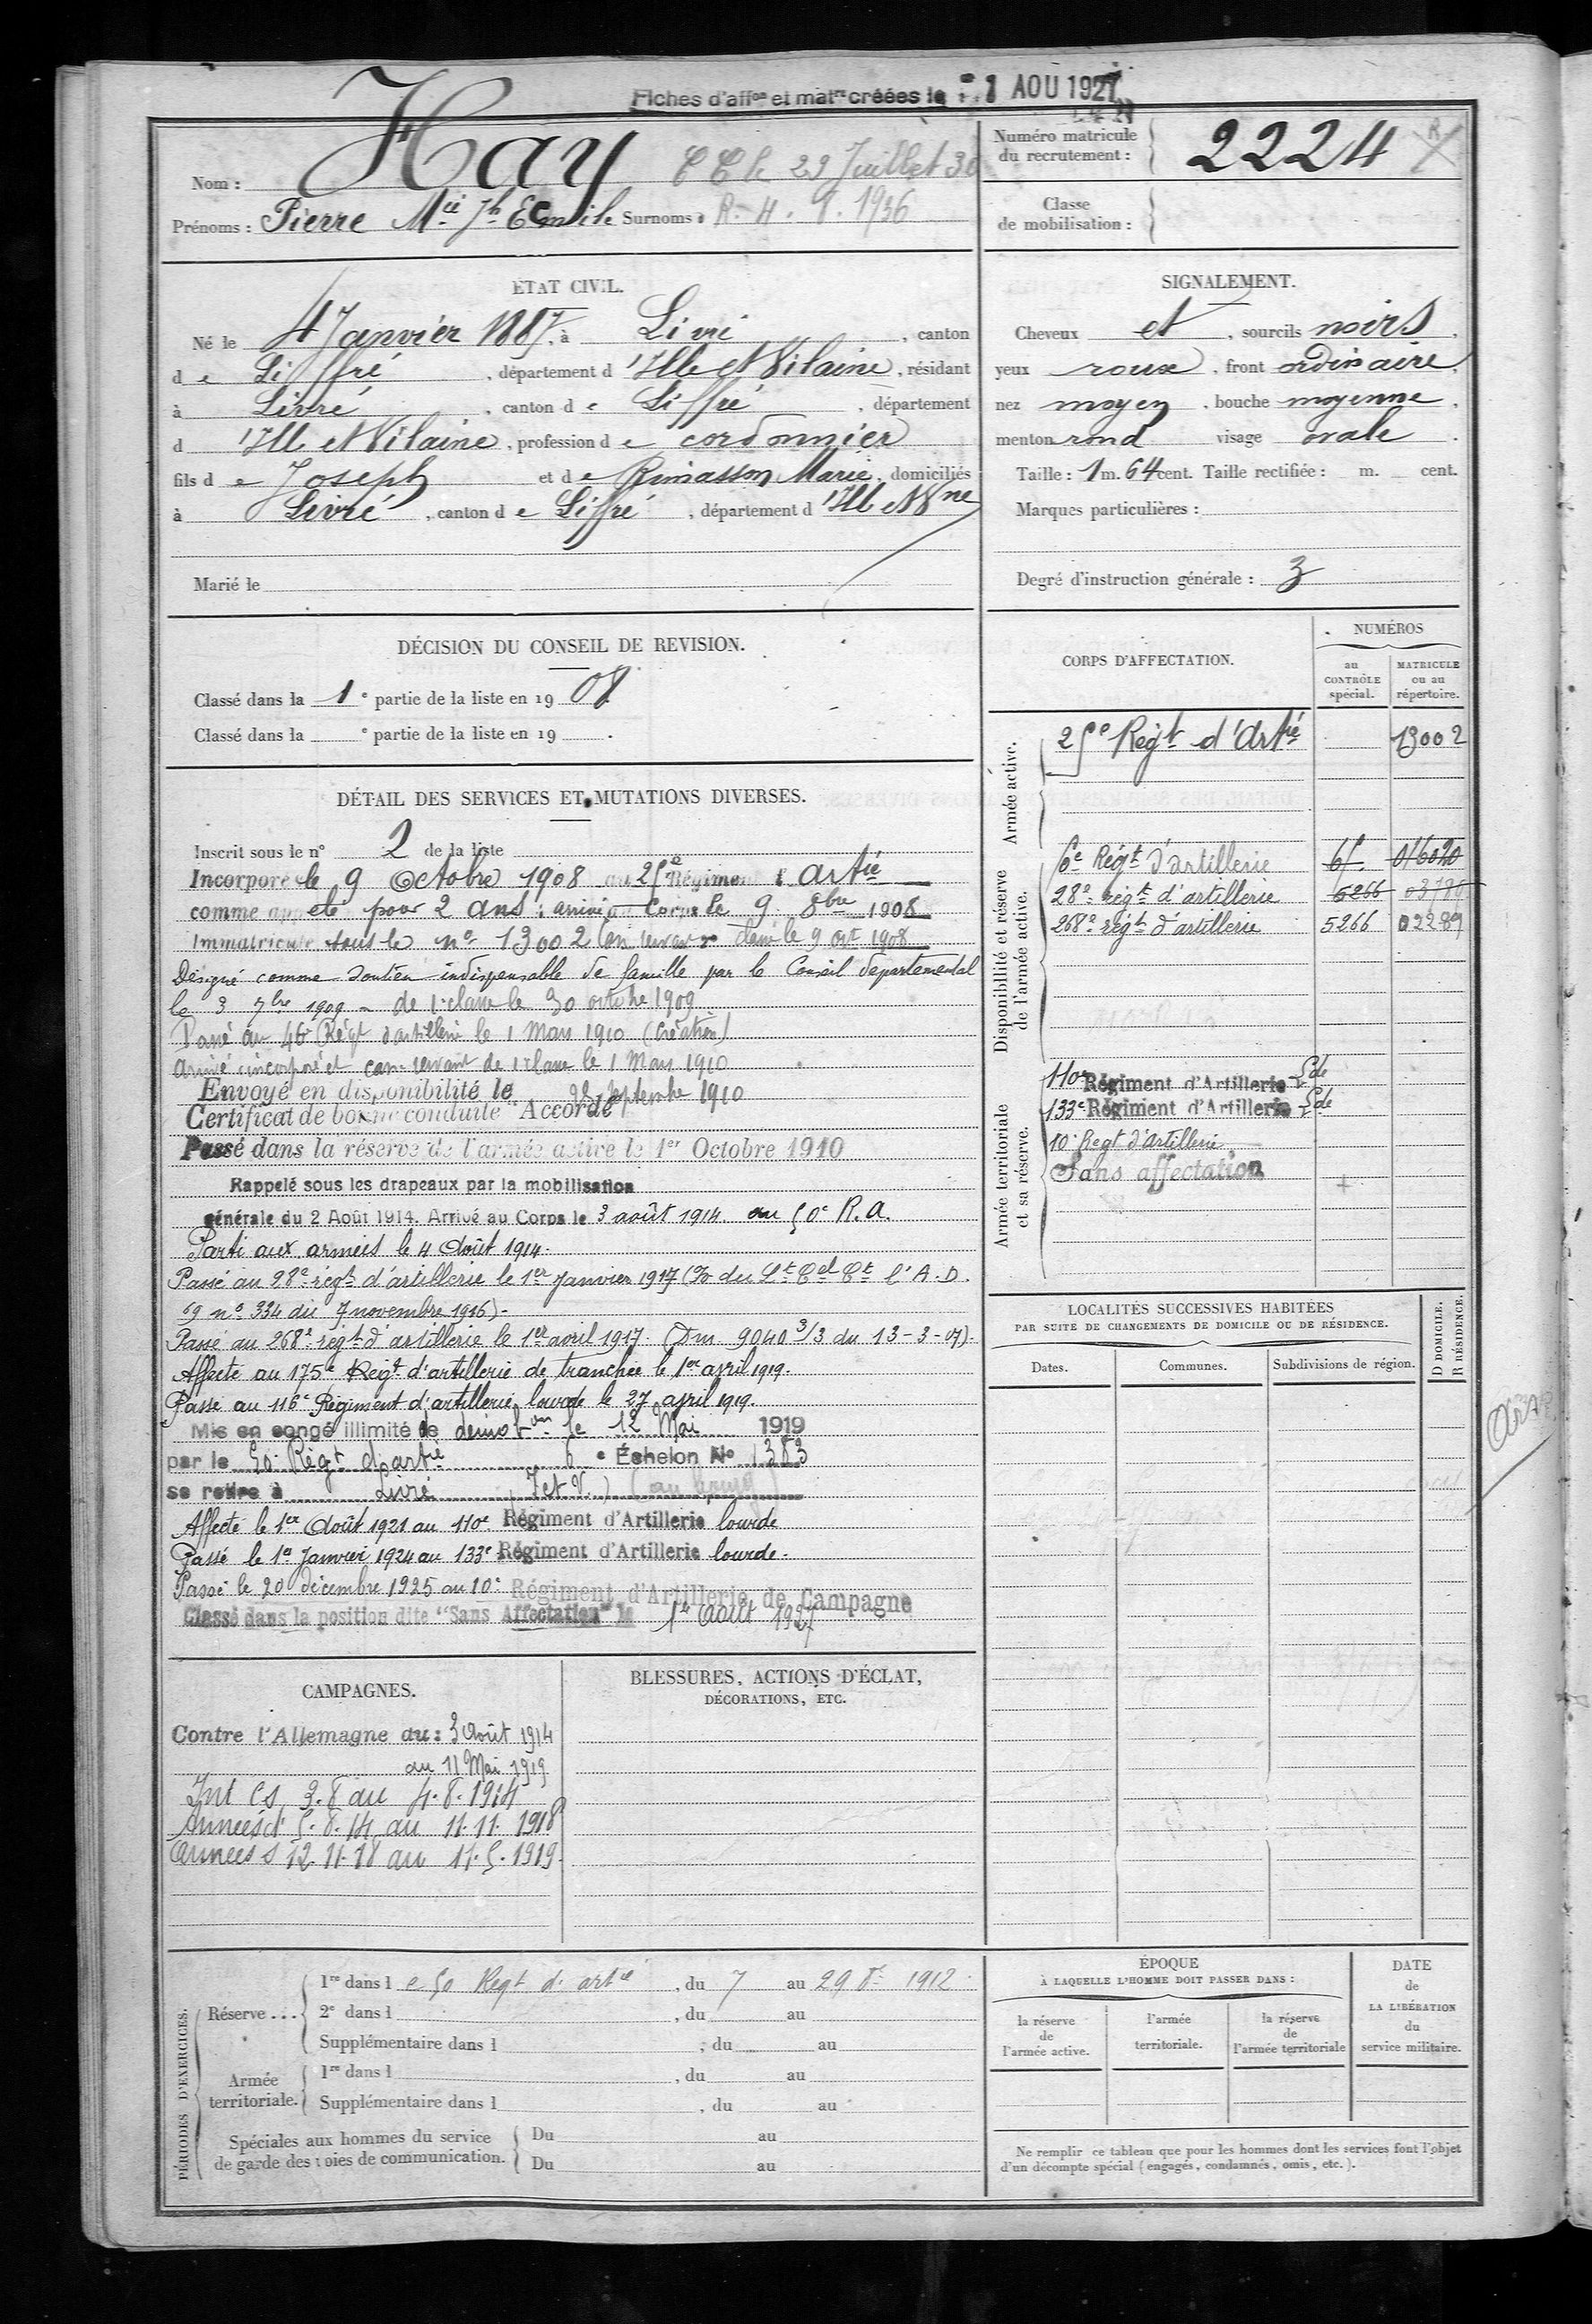 Fiches d'aff.on et mat.re créées le 1 AOU 1927
Nom : Hay C C le 29 Juillet 30
Prénoms : Pierre Mie Jh Emile Surnoms : R. 4. 8. 1936
Numéro matricule du recrutement : 2224
Classe de mobilisation :
ETAT CIVIL.
Né le 4 Janvier 1887, à Livré, canton
de Liffré, département d'Ille et Vilaine, résidant
à Livré, canton de Liffré, département
d'Ille et Vilaine, profession de cordonnier
fils de Joseph et de Rimasson Marie, domiciliés
à Livré, canton de Liffré, département d'Ill et Vne
Marié le
SIGNALEMENT.
Cheveux et, sourcils noirs,
yeux roux, front ordinaire,
nez moyen, bouche moyenne,
menton rond visage ovale.
Taille : 1 m. 64 cent. Taille rectifiée : m. cent.
Marques particulières :
Degré d'instruction générale : 3
DÉCISION DU CONSEIL DE REVISION.
Classé dans la 1e partie de la liste en 1908
Classé dans la e partie de la liste en 19 .
DÉTAIL DES SERVICES ET MUTATIONS DIVERSES.
Inscrit sous le n° 2 de la liste
Incorporé le 9 Octobre 1908 au Régiment d' artie
comme appelé pour 2 ans : arrivé au Corps le 9 8bre 1908
Immatriculé sous le n° 13002 Con servant dudit le 9 oct 1908
Désigné comme soutien indispensable de famille par le Conseil départemental
le 3 7bre 1909 - de 1e classe le 30 octobre 1909
Passé au 46 Régt d'artillerie le 1 Mars 1910 (Création)
arrivé incorporé et can. servant de 1 classe le 1 Mars 1910
Envoyé en disponibilité le 28 Septembre 1910
Certificat de bonne conduite "Accordé"
Passé dans la réserve de l'armée active le 1er Octobre 1910
Rappelé sous les drapeaux par la mobilisation
générale du 2 Août 1914. Arrivé au Corps le 3 août 1914 au 50e R.A.
Parti aux armées le 4 Août 1914.
Passé au 28e régt d'artillerie le 1er Janvier 1917 (Io du Lt Cel Ct l'A.D.
69 n° 334 du 7 novembre 1916)-
Passé au 268e régt d'artillerie le 1er avril 1917. (Dm 9040 3/3 du 13-3-17).
Affecté au 175e Régt d'artillerie de tranchée le 1er avril 1919.
Passé au 116e Régiment d'artillerie lourde le 27 april 1919.
Mis en congé illimité de démobon le 12 Mai 1919
par le 50 Régt d'artie 6e Échelon N° 1383
se retire à Livré (I et V.) (au bourg)
Affecté le 1er Août 1921 au 110e Régiment d'Artillerie lourde
Passé le 1er Janvier 1924 au 133e Régiment d'Artillerie lourde.
Passé le 20 décembre 1925 au 10e Régiment d'Artillerie de Campagne
Classé dans la position dite "Sans Affectation" le 1er Août 1927
CORPS D'AFFECTATION.
NUMÉROS
au CONTRÔLE spécial.
MATRICULE ou au répertoire.
Armée active.
Régt d'Artie 13002
Disponibilité et réserve de l'armée active.
Régt d'artillerie
28e régt d'artillerie 5266
268e régt d'artillerie 5266 02289
Armée territoriale et sa réserve.
110e Régiment d'Artillerie Lde
133e Régiment d'Artillerie Lde
10e Regt d'Artillerie
Sans affectation
LOCALITÉS SUCCESSIVES HABITÉES
PAR SUITE DE CHANGEMENTS DE DOMICILE OU DE RÉSIDENCE.
Dates.
Communes.
Subdivisions de région.
D DOMICILE.
R RÉSIDENCE.
CAMPAGNES.
Contre l'Allemagne du : 3 Août 1914
au 11 Mai 1919
Int Cs 3.8 au 4.8.1914
Armées d 5.8.14 au 11.11.1918
Armées s 12.11.18 au 11.5.1919.
BLESSURES, ACTIONS D'ÉCLAT,
DÉCORATIONS, ETC.
PÉRIODES D'EXERCICES.
Réserve...
1re dans le 50 Regt d'artie, du 7 au 29 1912
2e dans l , du au
Supplémentaire dans l , du au
Armée territoriale.
1re dans l , du au
Supplémentaire dans l , du au
Spéciales aux hommes du service
de garde des voies de communication.
Du au
Du au
ÉPOQUE
À LAQUELLE L'HOMME DOIT PASSER DANS :
la réserve de l'armée active.
l'armée territoriale.
la réserve de l'armée territoriale
DATE de LA LIBÉRATION du service militaire.
Ne remplir ce tableau que pour les hommes dont les services font l'objet
d'un décompte spécial (engagés, condamnés, omis, etc.).